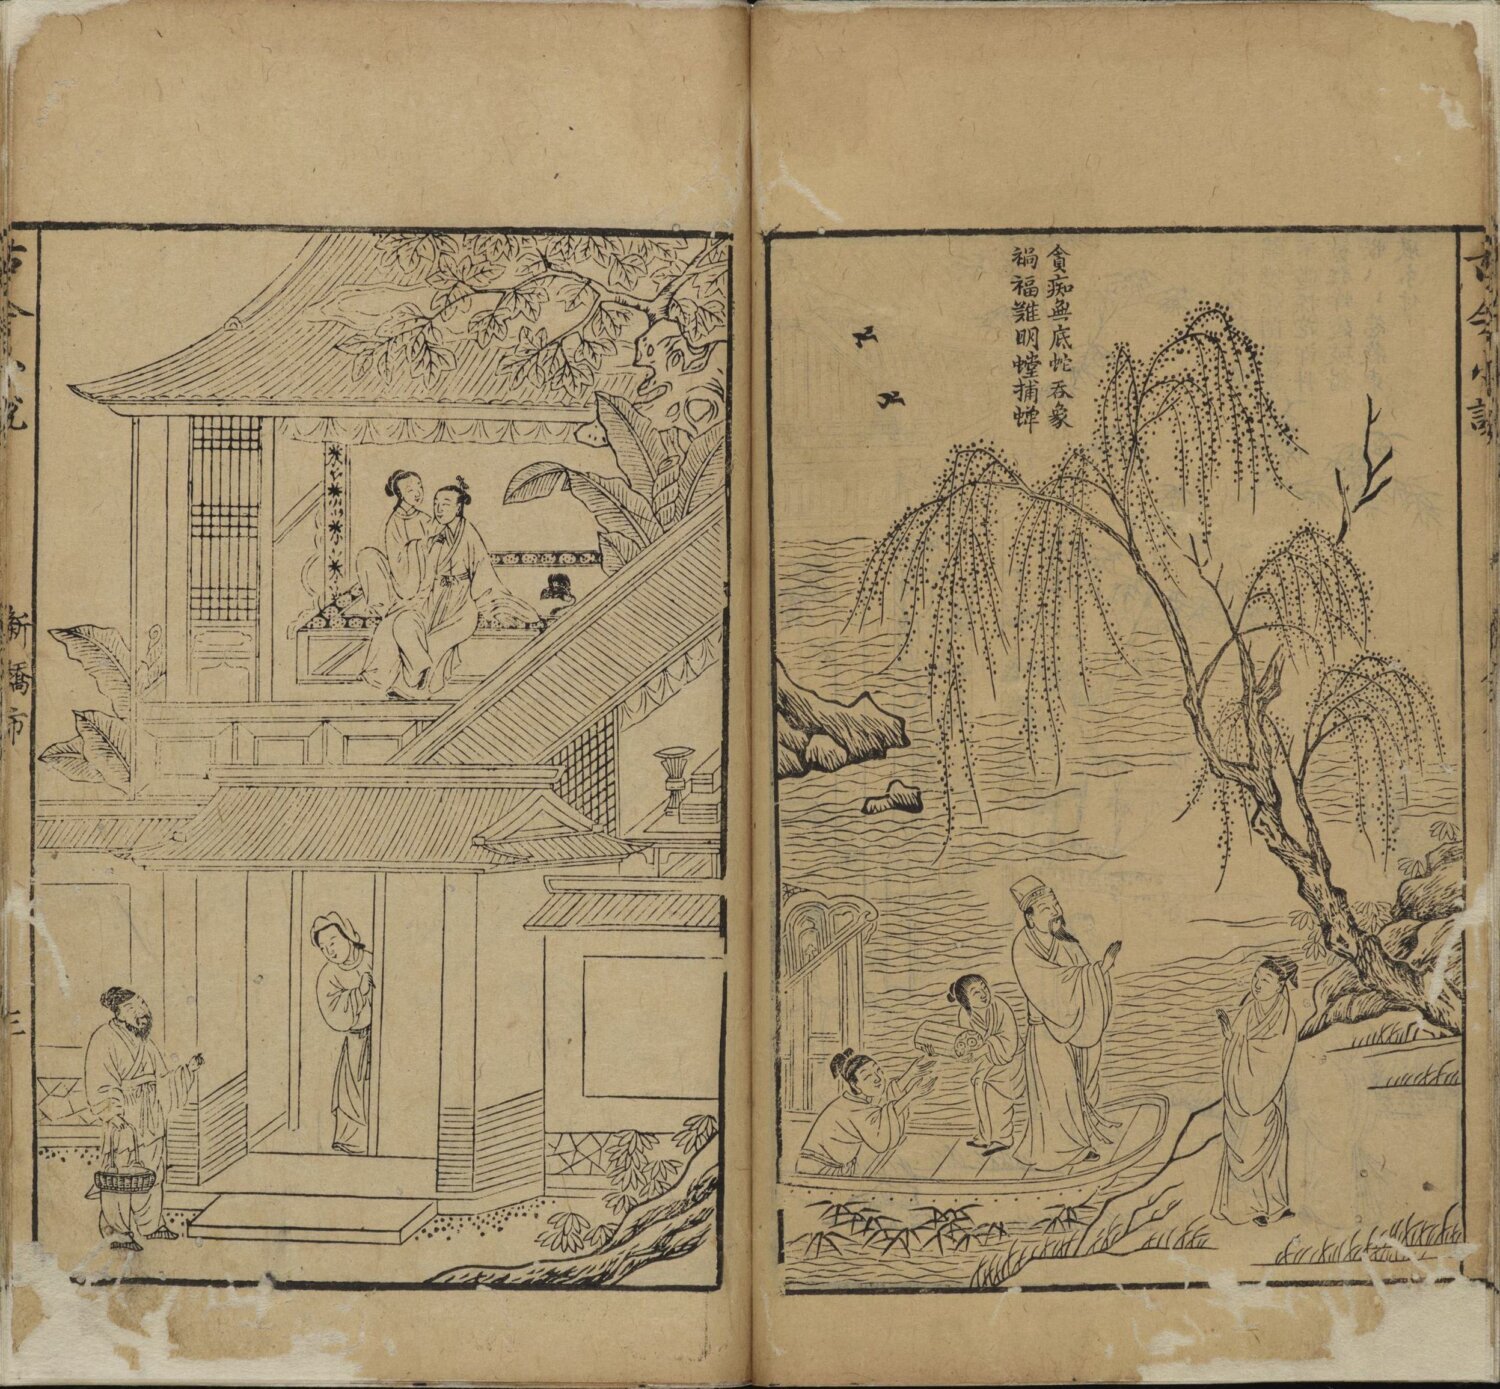 貪痴無底蛇吞象
禍福難明螳捕蟬
古今小說
古今小說
新橋市
三